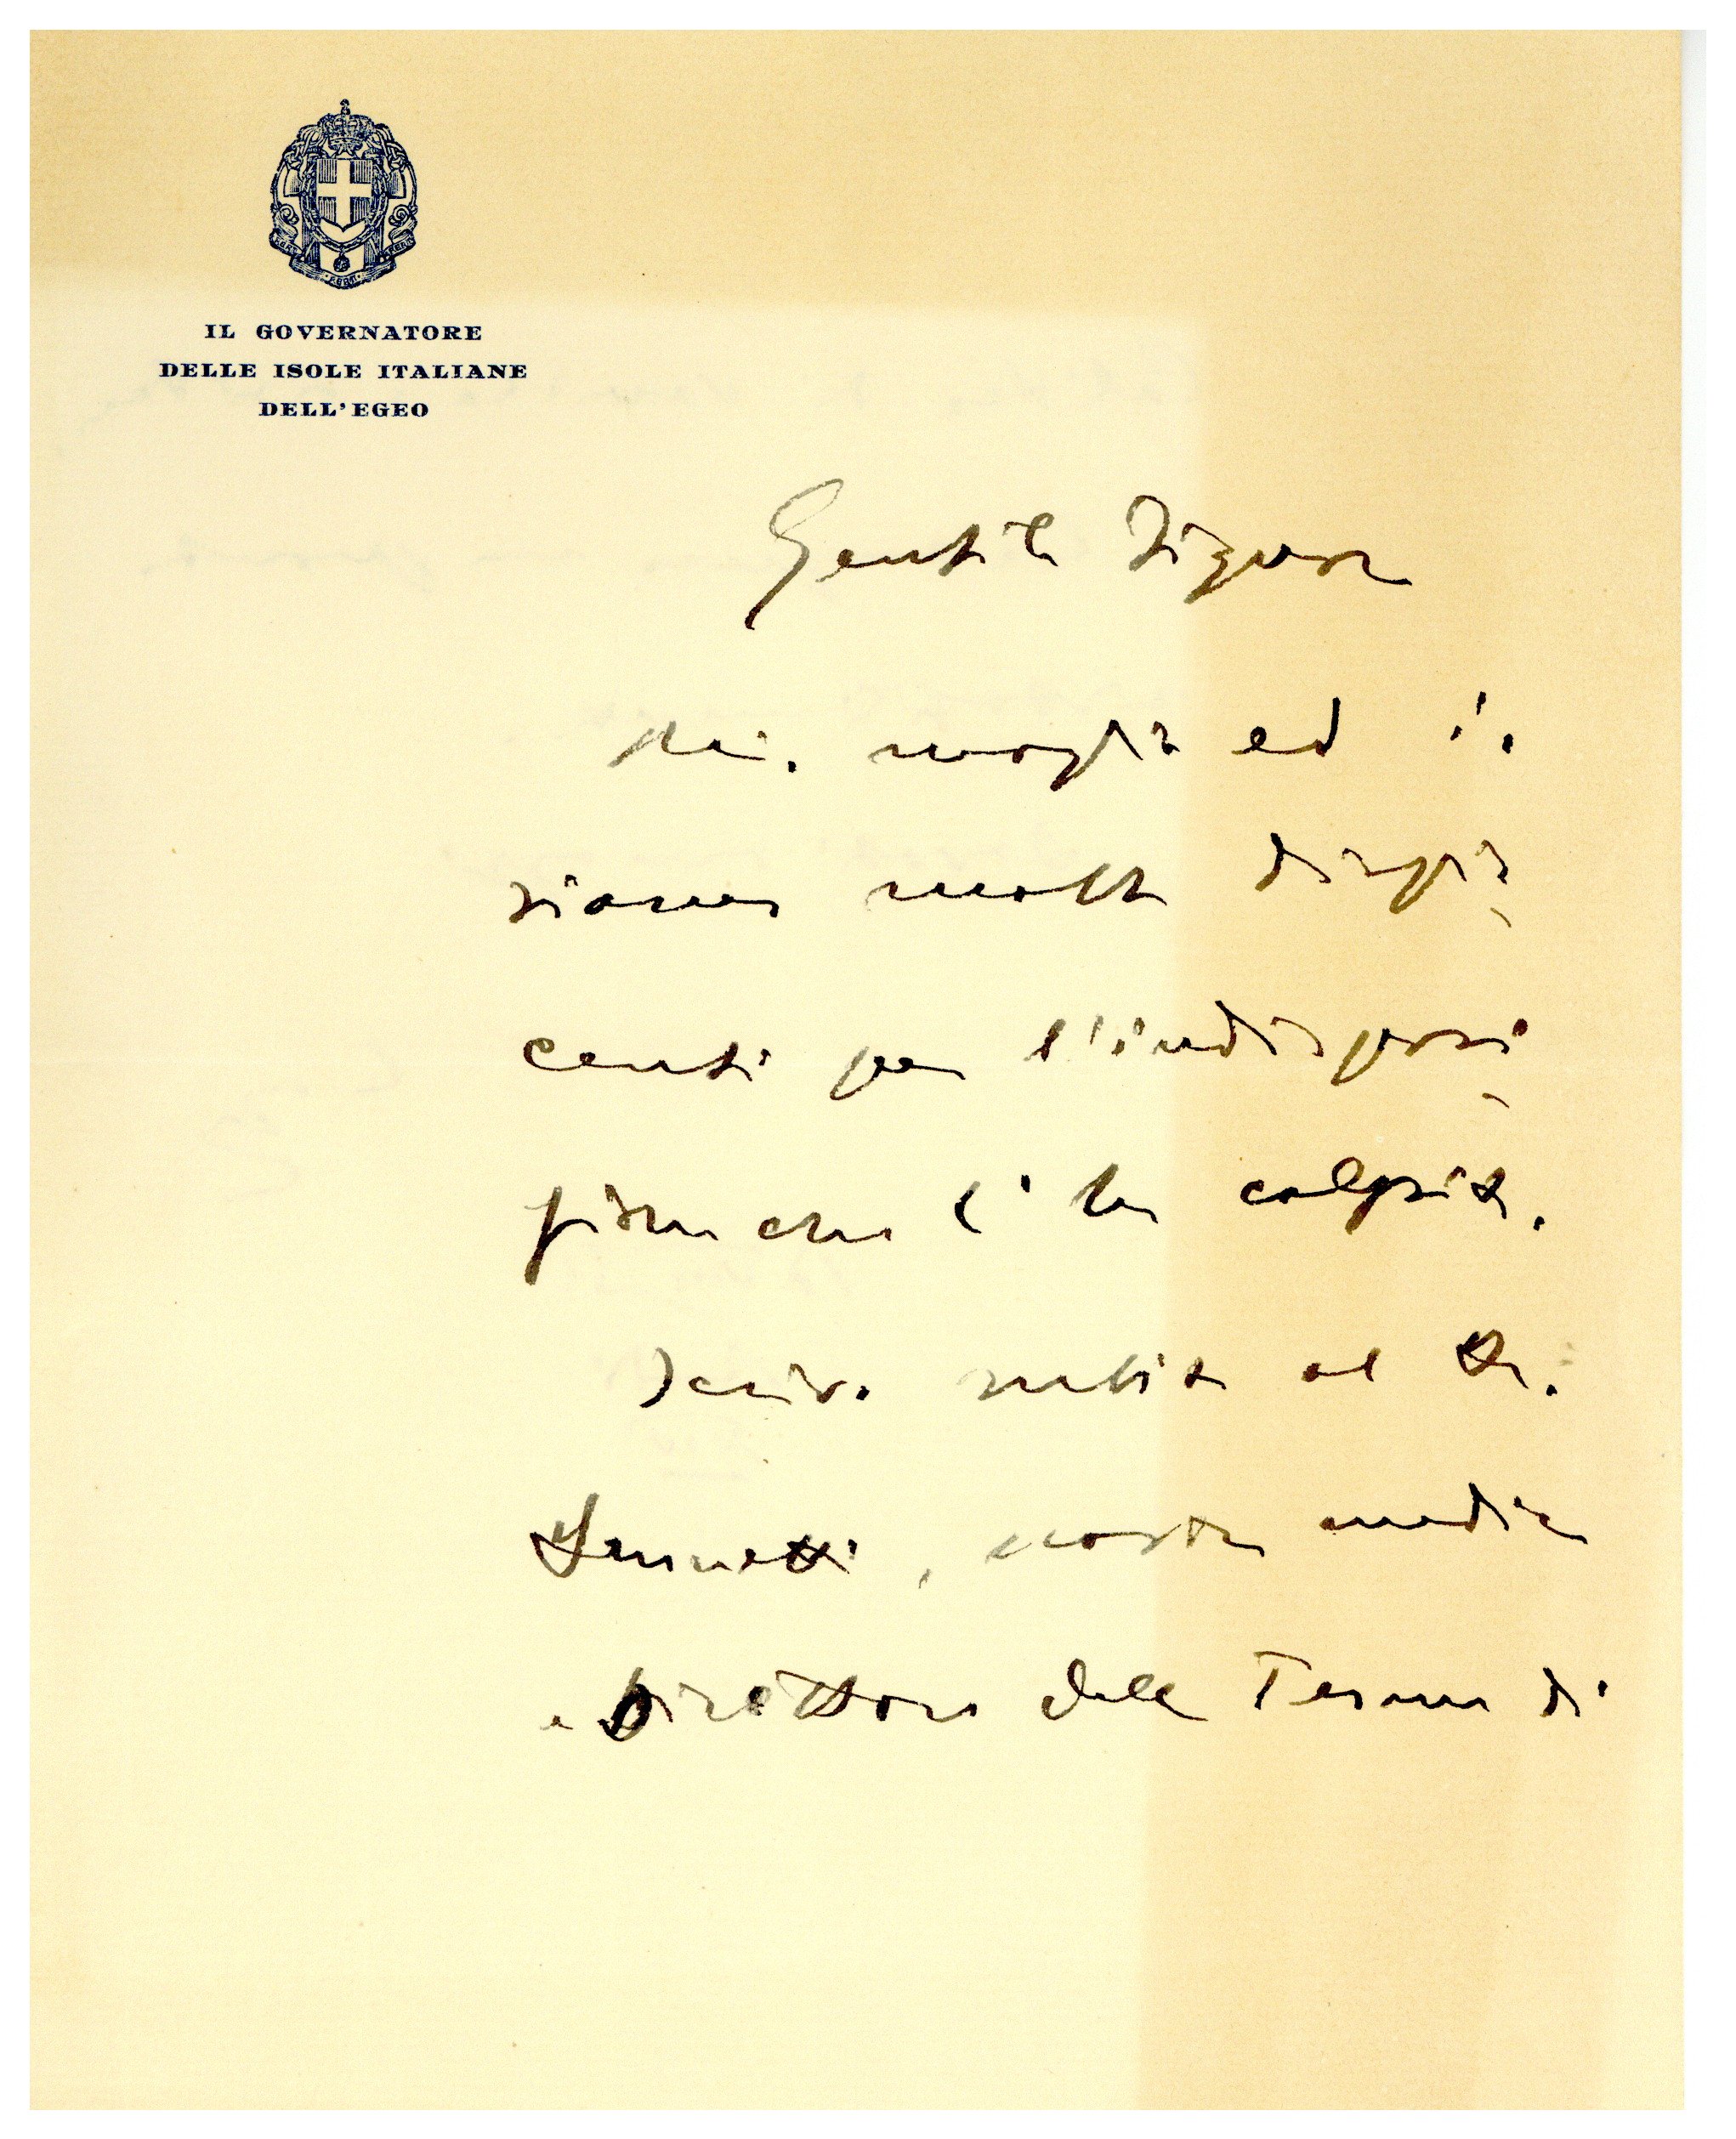 IL GOVERNATORE
DELLE ISOLE ITALIANE
DELL'EGEO
Gentile Signore
mia moglie ed io
siamo molto dispia
centi per l'indisposi
zione che l'ha colpito.
Scrivo subito al Dr.
nostro medico
e Direttore delle Terme di